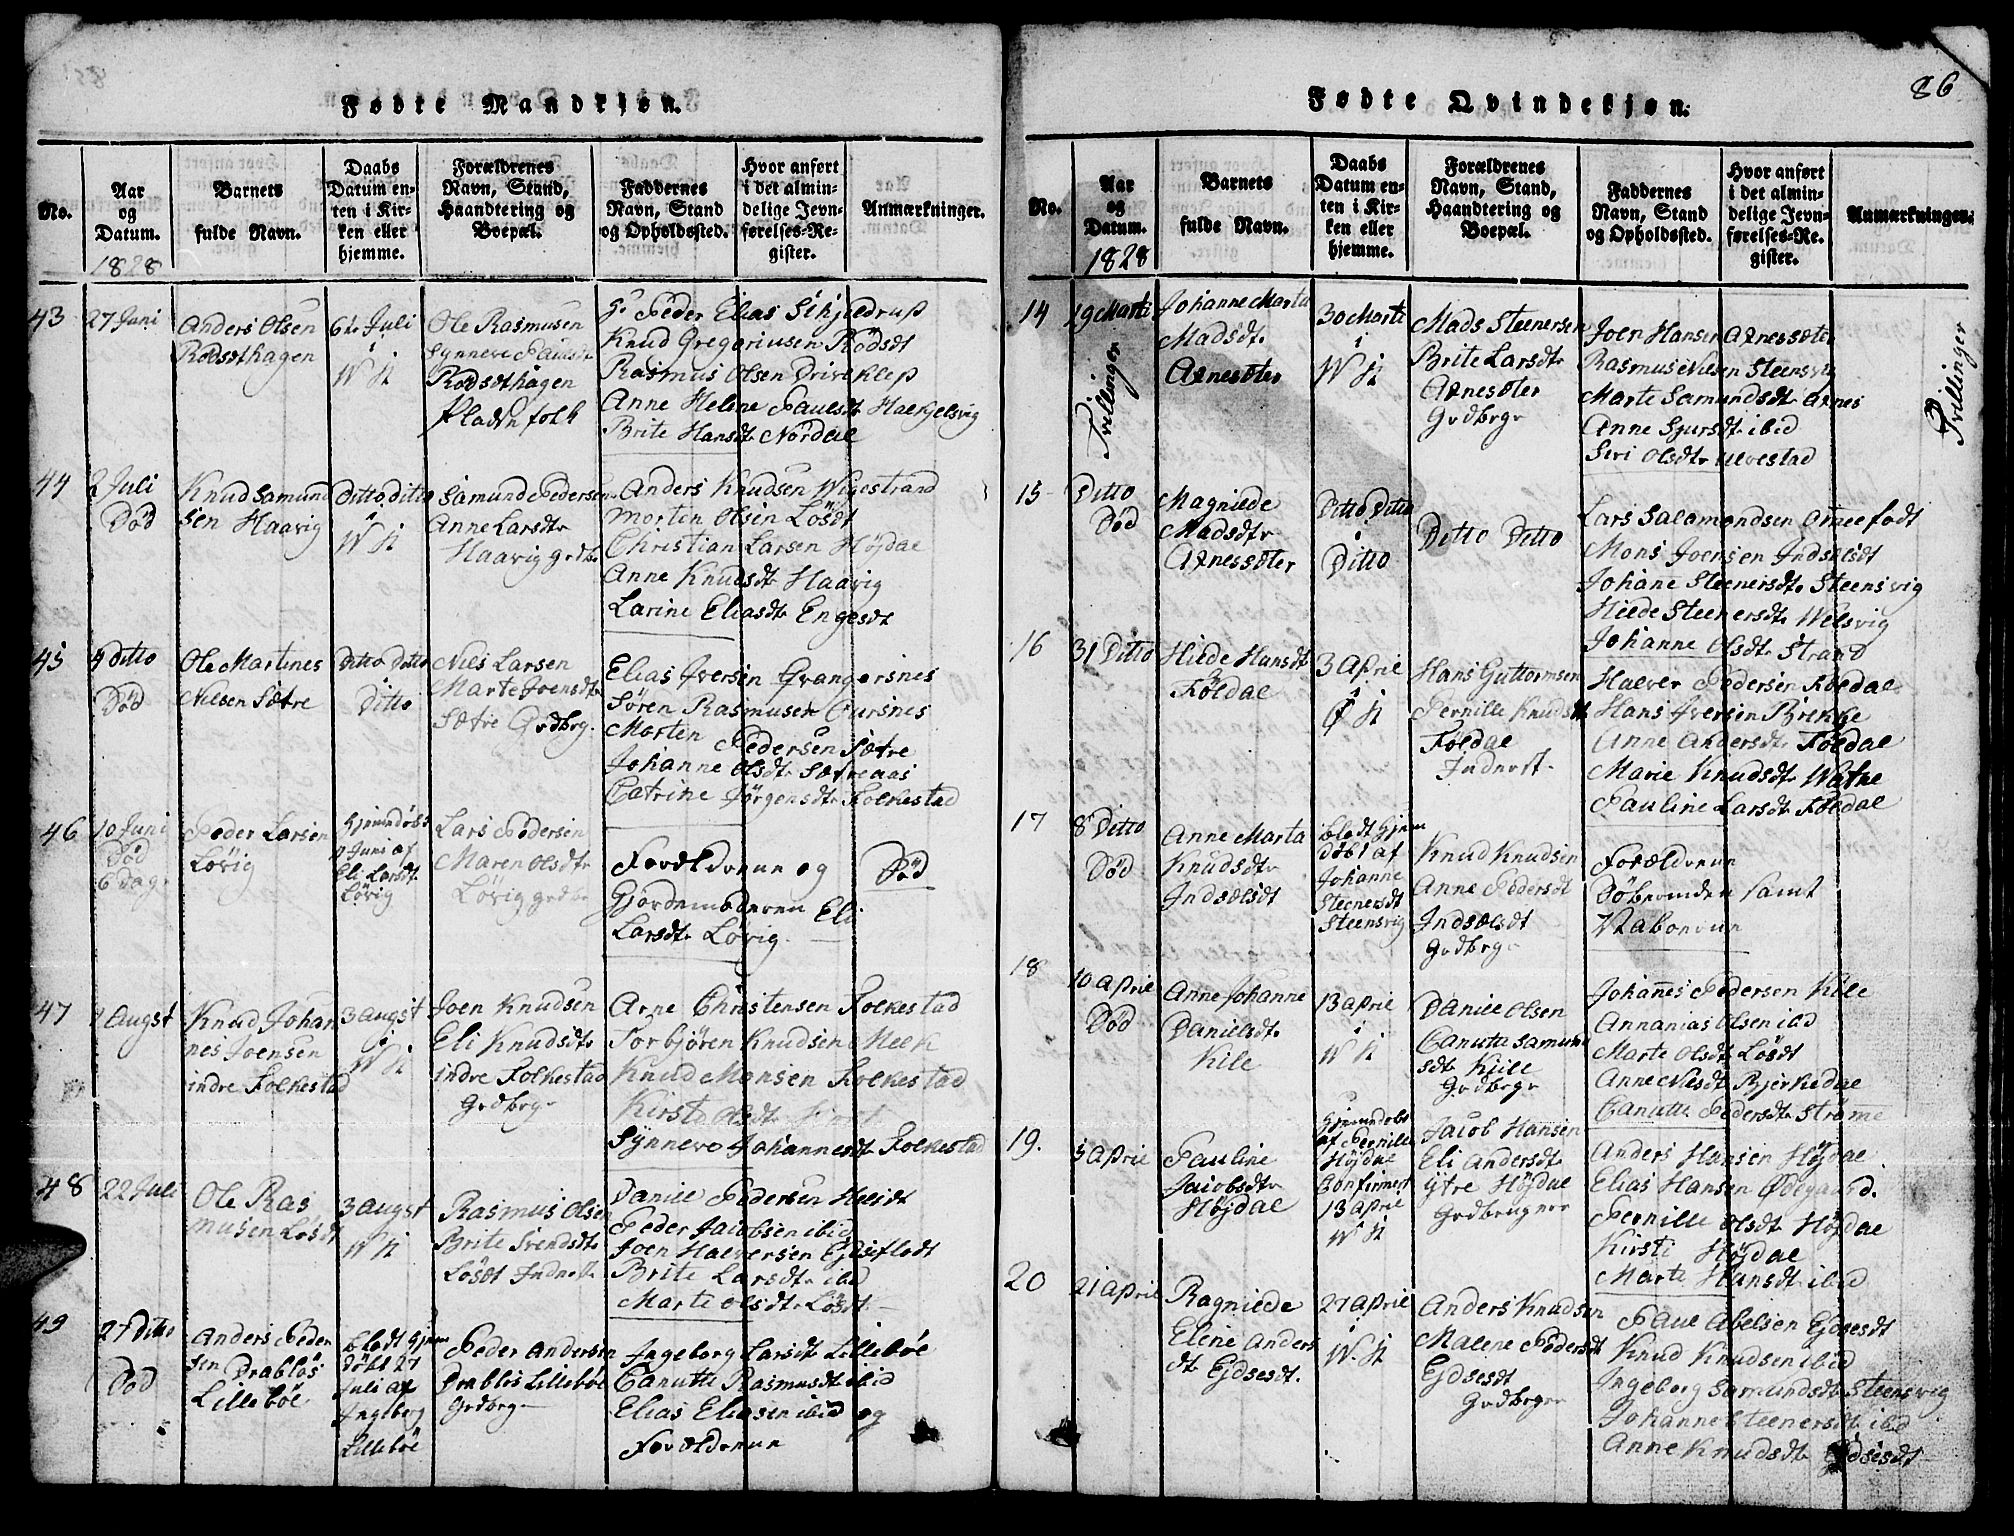 Fødte Mandkjøn.
No.
Aar og Datum.
1828
Barnets fulde Navn.
Daabs Datum enten i Kirken eller hjemme.
Forældrenes Navn, Stand, Haandtering og Boepæl.
Faddernes Navn, Stand og Opholdssted.
Hvor anført i det almindelige Jevnførelses-Register.
Anmærkninger.
43
27 Juni
Anders Olsen
Rødsdthagen
6te Juli
i
W K
Ole Rasmusen
Synneve Paulsdtr
Rødsdthagen
Pladsn folk
Hr Peder Elias Schjeldrup
Knud Gregoriusen Rödsdt
Rasmus Olsen Driveklep
Anne Helene Paulsdtr Haekelsvig
Brite Hansdtr Nordal
44
2 Juli
Död
Knud Samund
sen Haavig
Ditto Ditto
i
W K
Samund Pedersen
Anne Larsdtr
Haavig grdbr
Anders Knudsen Wigestrand
Morten Olsen Løsdt
Christian Larsen Höjdal
Anne Knudsdtr Haavig
Larine Eliasdtr Engesdt
45
4 Ditto
Död
Ole Martines
Nilsen Sætre
Ditto Ditto
Ditto
Nils Larsen
Marte Joensdtr
Sætre Grdbrg.
Elias Iversen Qvangersnes
Sören Rasmusen Aursnes
Morten Pedersen Sætre
Johanne Olsdtr Sætreaas
Catrine Jørgensdtr Folkestad
46
10 Juni
Död
6 Dag
Peder Larsen
Lövig
Hjemmdøbt
Juni af
Eli Larsdtr
Lövig
Lars Pedersen
Maren Olsdtr
Lövig grdbr
Forældrenne og
Gjordemoderen Eli
Larsdtr Lövig.
Død
47
1 Augst
Knud Johan
nes Joensen
indre Folkestad
3 Augst
i
W K
Joen Knudsen
Eli Knudsdtr
indre Folkestad
Grdbrg
Arne Christensen Folkestad
Torbjören Knudsen Meek
Knud Monsen Folkestad
Kirste Olsdtr
Synneve Johannesdt Folkestad
48
22 Juli
Ole Ras
musen Løsdt
3 Augst
i
W K
Rasmus Olsen
Brite Svendsdtr
Løsdt Inderst
Daniel Pedersen
Peder Jacobsen ibid
Joen Halversen Ejdseflodt
Brite Larsdtr ibid
Marte Olsdtr Løsdt
49
27 Ditto
Död
Anders Peder
sen Drabløs
Lillebøe
blodt Hjem
døbt 27
Juli af
Ingeborg
Lillebøe
Peder Andersen
Drabløs Lillebøe
Grdbrg
Ingeborg Larsdtr Lillebøe
Canutte Rasmusdt ibid
Elias Eliasen ibid og
Forældrenne
86
Fødte Qvindekjøn.
No.
Aar og Datum.
1828
Barnets fulde Navn.
Daabs Datum enten i Kirken eller hjemme.
Forældrenes Navn, Stand, Haandtering og Boepæl.
Faddernes Navn, Stand og Opholdssted.
Hvor anført i det almindelige Jevnførelses-Register.
Anmærkninger.
14
19 Marts
Tvillinger
Johanne Marta
Madsdtr
Aznesæter
30 Marts
i
W K
Mads Steenersen
Brite Larsdtr
Aznesæter
Grdbrgr
Joen Hansen Aznessæter
Rasmus Nilsen Steensvig
Marte Samundsdtr Aznes
Anne Sjursdtr ibid
Siri Olsdtr Ulvestad
Tvillinger
15
Ditto
Død
Magniede
Madsdtr
Aznessæter
Ditto Ditto
i
Ditto
Ditto Ditto
Lars Salamondsen Ameefodt
Mons Joensen Indsælsdt
Johane Steenersdtr Steensvig
Hilde Steenersdtr Welsvig
Johanne Olsdtr Strand
16
31 Ditto
Hilde Hansdt
Føldal
3 April
i
K
Hans Guttormsen
Pernille Knudsdtr
Føldal
Inderst
Halver Pedersen Føldal
Hans Iversen Brekke
Anne Andersdtr Føldal
Marie Knudsdtr Watne
Pauline Larsdtr Føldal
17
8 Ditto
Død
Anne Marta
Knudsdtr
Indsælsdt
blodt Hjem
døbt af
Johanne
Steenersdt
Steensvig
Knud Knudsen
Anne Pedersdt
Indsælsdt
Grdbrgr
Forældrenne
Döbermden samt
Naboerne
18
10 April
Død
Anne Johanne
Danielsdtr
Kile
13 April
i
W K
Daniel Olsen
Canutte Samund
sdtr Kjile
Grdbrgr
Johannes Pedersen Kile
Annanias Olsen ibid
Marte Olsdtr Løsdt
Anne Nilsdtr Bjerkedal
Canutte Pedersdtr Strømme
19.
5 April
Pauline
Jacobsdtr
Höjdal
Hjemmdøbt
af Pernille
Höjdal
Confirmert
13 April
W K
Jacob Hansen
Eli Andersdtr
Ytre Höjdal
Grdbrugere
Anders Hansen Höjdal
Elias Hansen Ødegaard.
Pernille Olsdtr Höjdal
Kirsti Höjdal
Marte Hansdt ibid
20
21 April
Ragniede
Eline Anders
dtr Ejdsesdt.
27 April
i
W. K
Anders Knudsen
Malene Pedersdt
Ejdsesdt
Grdbrger
Paul Abelsen Ejdsesdt
Knud Knudsen ibid
Ingeborg Samundsdtr Steensvig
Johanne Steenersdt ibid
Anne Knudsdtr Ejdsesdt